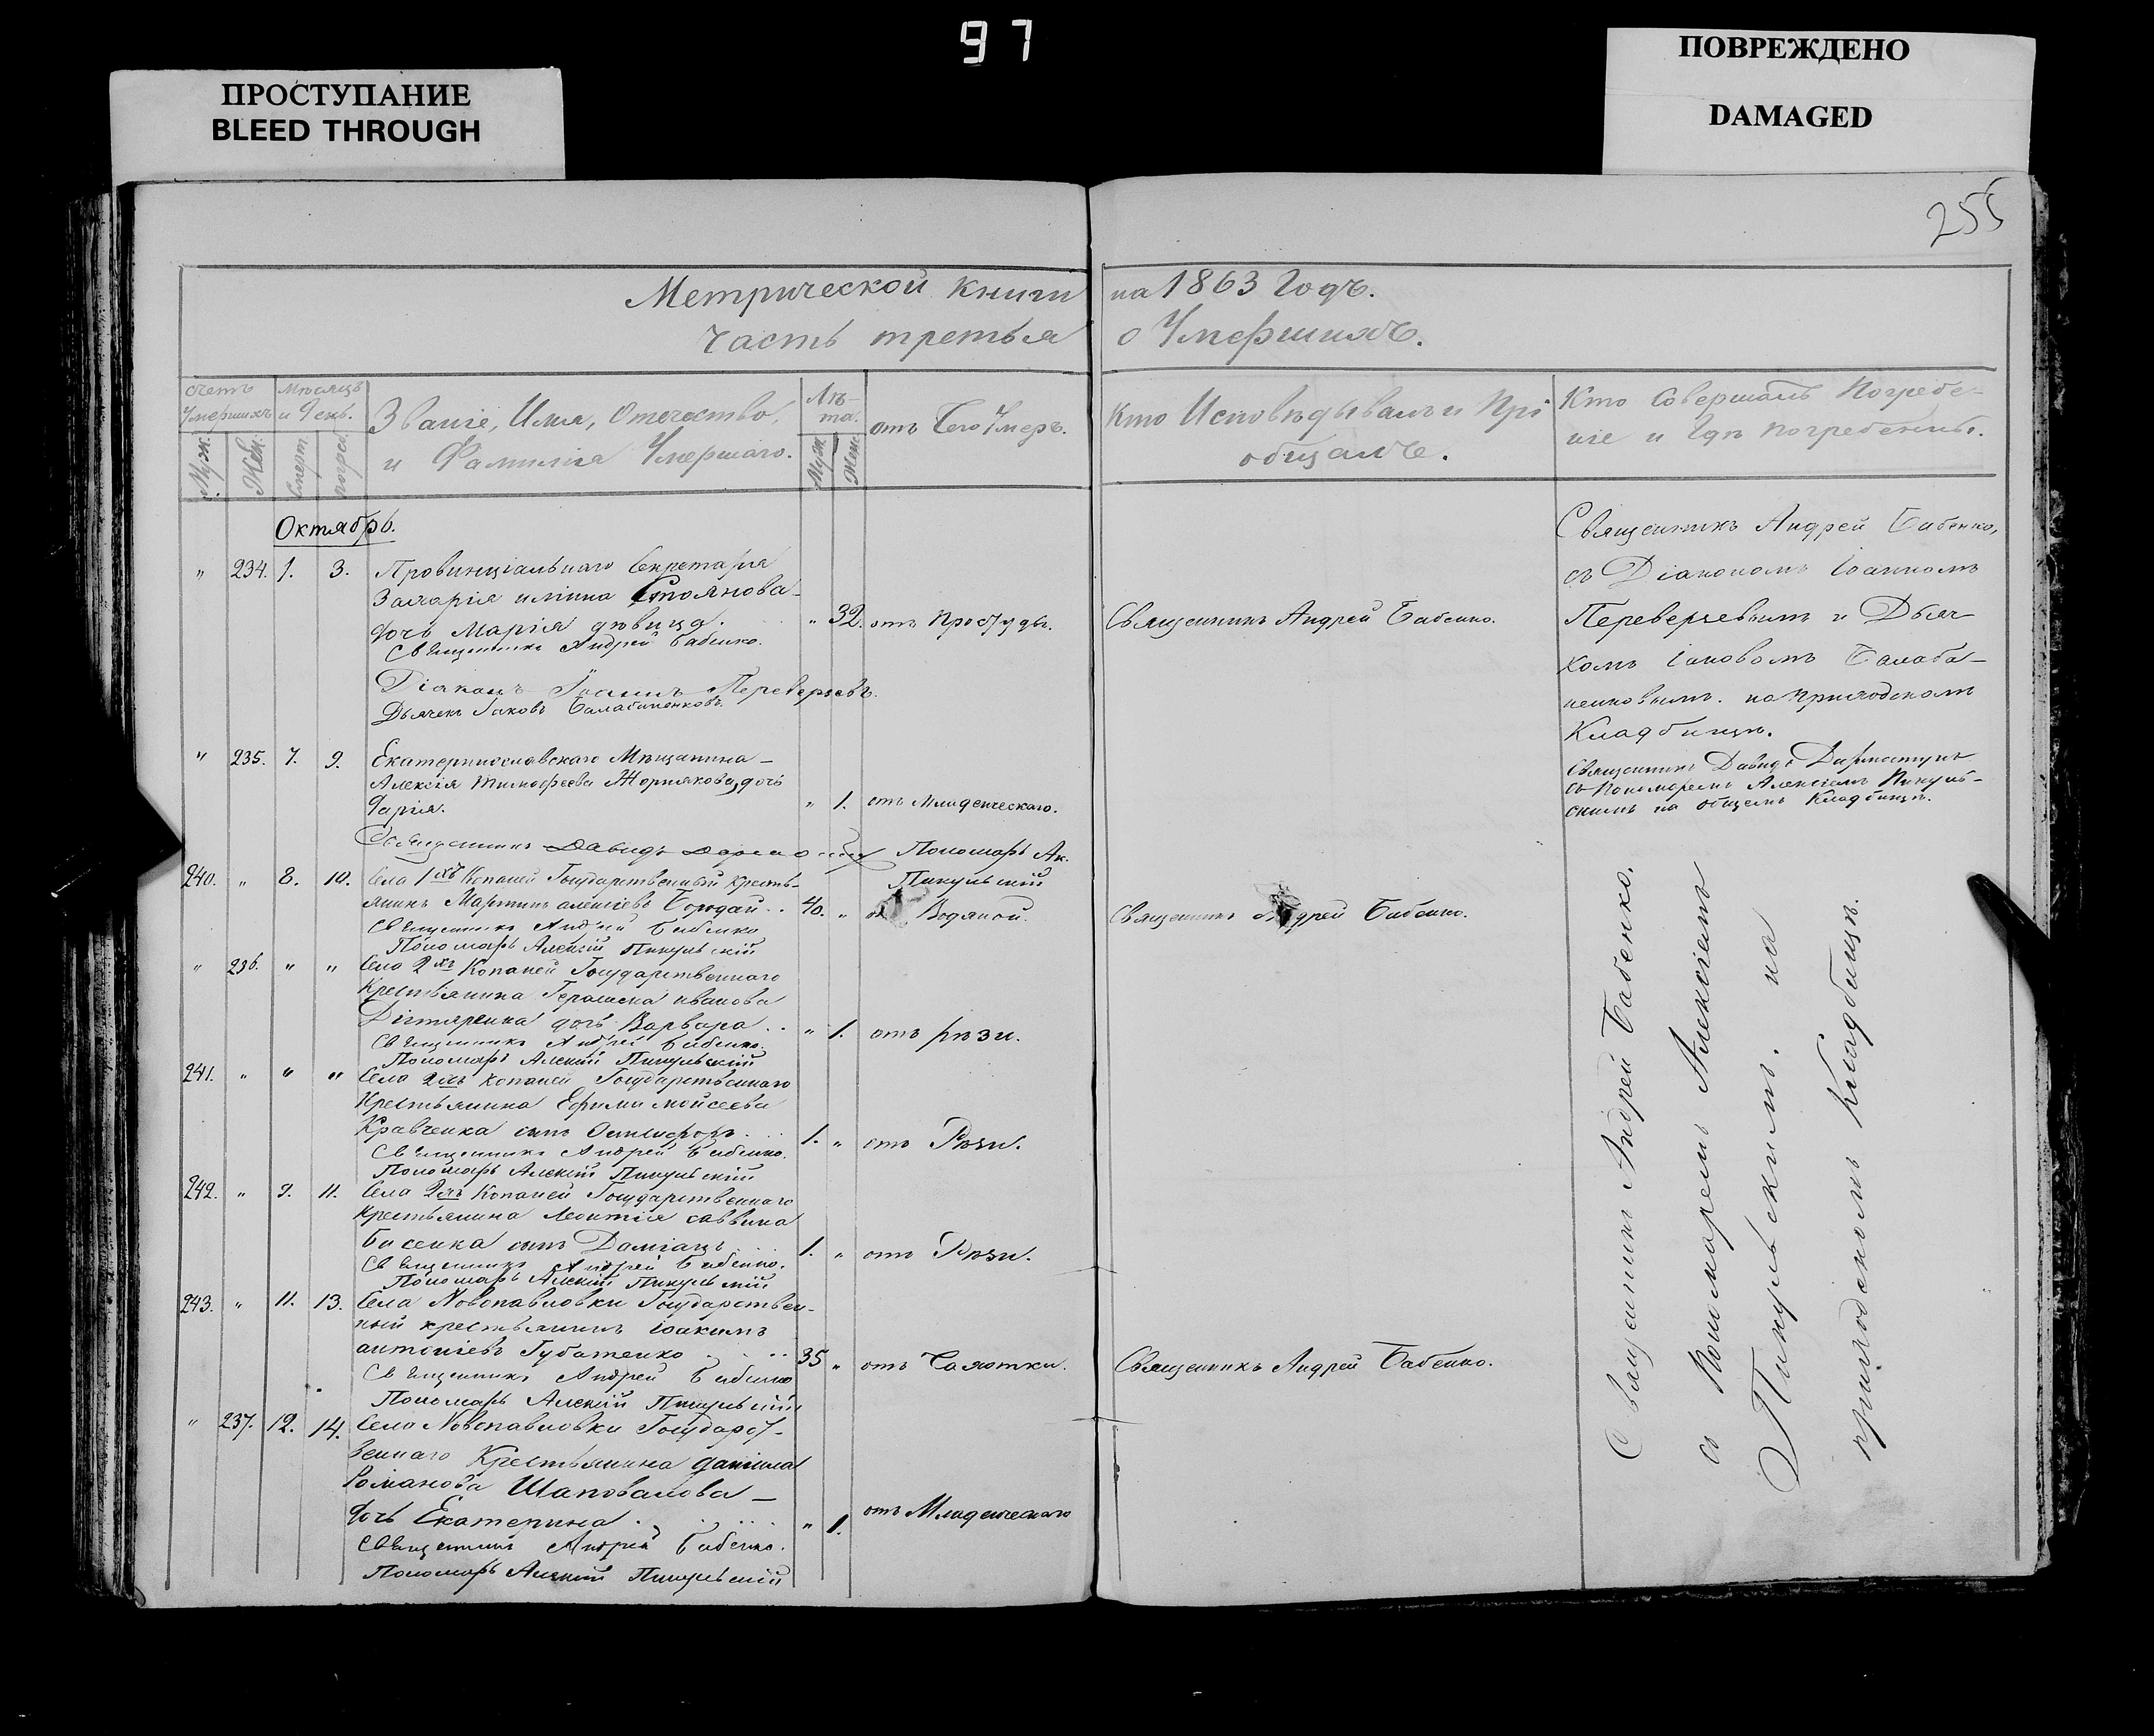 97
ПРОСТУПАНИЕ
BLEED THROUGH
ПОВРЕЖДЕНО
DAMAGED
255
Метрической книги на 1863 Годъ.
Часть третья о Умершихъ.
Счетъ Умершихъ
Муж.
Жен.
Мѣсяцъ и День.
Смерт.
погреб.
Званіе, Имя, Отчество,
и Фамилія Умершаго.
Лѣта.
Муж.
Жен.
отъ Чего Умеръ.
Кто Исповѣдывалъ и Прі
общалъ.
Кто Совершалъ Погребе-
ніе и Гдѣ погребены.
Октябрь.
" 234. 1. 3. Провинціальнаго Секретаря
Захарія Стоянова
дочь Марія дѣвица. " 32. отъ простуды. Священникъ Андрей Бабенко.
Священникъ Андрей Бабенко.
Діаконъ Іоаннъ Переверзевъ.
Дьячекъ Іаковъ Балабаненковъ.
Священникъ Андрей Бабенко,
съ Діакономъ Іоанномъ
Переверзевымъ и Дьяч
комъ Іаковомъ Балаба-
ненковымъ. на приходскомъ
Кладбищѣ.
" 235. 7. 9. Екатеринославскаго Мѣщанина
Алексія Тимофеева Жорнякова, дочь
Дарія. " 1. отъ Младенческаго.
Священникъ Давидъ
Пономарь Ал.
Пикульскій
Священникъ Давидъ
съ Пономаремъ Алексіемъ Пикуль-
скимъ на общемъ Кладбищѣ.
240. " 8. 10. Села 1хъ Копаней Государственный Кресть-
янинъ Мартинъ алексіевъ Бородай. 40. " Водяной. Священникъ Андрей Бабенко.
Священникъ Андрей Бабенко
Пономарь Алексій Пикульскій
" 236. " " Села 2хъ Копаней Государственнаго
Крестьянина Герасима иванова
Дігтяренка дочь Варвара " 1. отъ рѣзи.
Священникъ Андрей Бабенко.
Пономарь Алексій Пикульскій
241. " " " Села 2хъ Копаней Государственнаго
Крестьянина Ефима мойсеева
Кравченка сынъ 1. " отъ Рѣзи.
Священникъ Андрей Бабенко.
Пономарь Алексій Пикульскій
242. " 9. 11. Села 2хъ Копаней Государственнаго
Крестьянина Леонтія саввина
сынъ Даміанъ 1. " отъ Рѣзи.
Священникъ Андрей Бабенко.
Пономарь Алексій Пикульскій
243. " 11. 13. Села Новопавловки Государствен-
ный крестьянинъ Іоакимъ
антоніевъ Губатенко 35 " отъ Чахотки. Священникъ Андрей Бабенко.
Священникъ Андрей Бабенко
Пономарь Алексій Пикульскій
" 237. 12. 14. Села Новопавловки Государст-
веннаго Крестьянина даніила
Романова Шаповалова
дочь Екатерина " 1. отъ Младенческаго
Священникъ Андрей Бабенко.
Пономарь Алексій Пикульскій
Священникъ Андрей Бабенко.
съ Пономаремъ Алексіемъ
Пикульскимъ. на
приходскомъ Кладбищѣ.